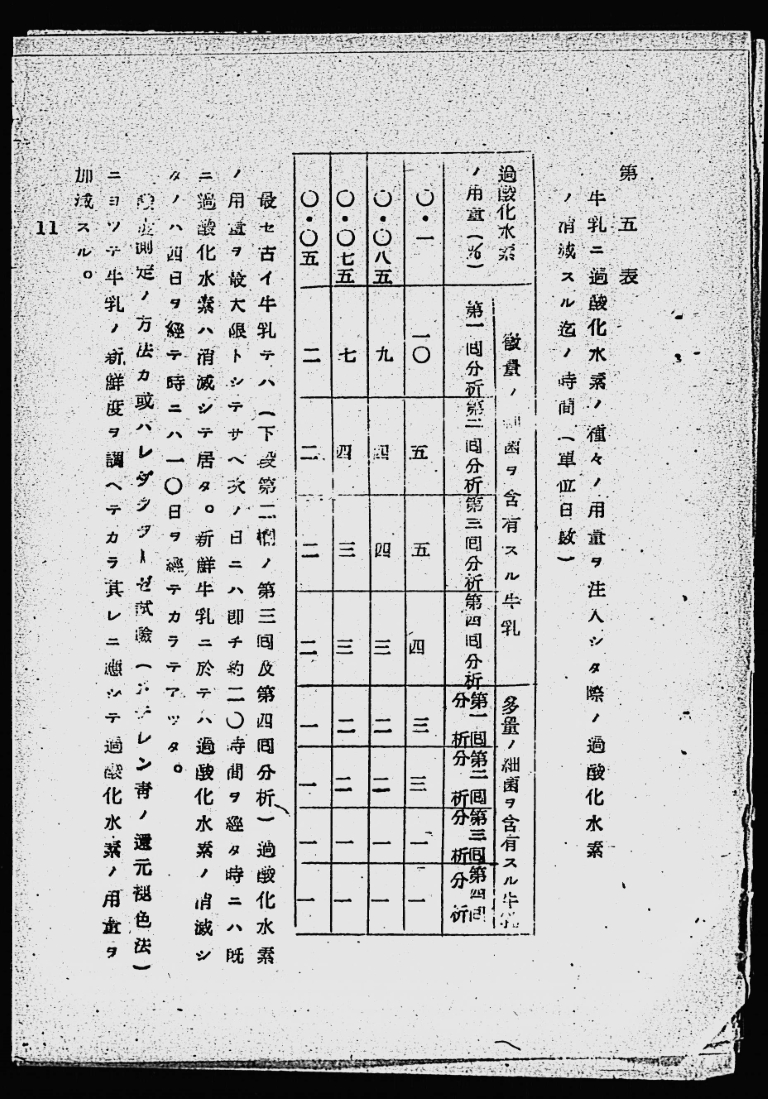 第五表
牛乳ニ過酸化水素ノ種々ノ用量ヲ注入シタ際ノ過酸化水素
ノ消滅スル迄ノ時間（單位日數）
過酸化水素
ノ用量（％）
微量ノ細菌ヲ含有スル牛乳
多量ノ細菌ヲ含有スル牛乳
第一囘分析
第二囘分析
第三囘分析
第四囘分析
第一囘分析
第二囘分析
第三囘分析
第四囘分析
〇・一 一〇 五 五 四 三 三 一 一
〇・〇八五 九 四 四 三 二 二 一 一
〇・〇七五 七 四 三 三 二 二 一 一
〇・〇五 二 二 二 二 一 一 一 一
最セ古イ牛乳テハ（下段第二欄ノ第三囘及第四囘分析）過酸化水素
ノ用量ヲ最大限トシテサヘ次ノ日ニハ卽チ約二〇時間ヲ經タ時ニハ既
ニ過酸化水素ハ消滅シテ居タ。新鮮牛乳ニ於テハ過酸化水素ノ消滅シ
タノハ四日ヲ經テ時ニハ一〇日ヲ經テカラテアツタ。
酸度測定ノ方法カ或ハレダクターゼ試驗（メチレン靑ノ還元褪色法）
ニヨツテ牛乳ノ新鮮度ヲ調ヘテカラ其レニ應シテ過酸化水素ノ用量ヲ
加減スル。
11